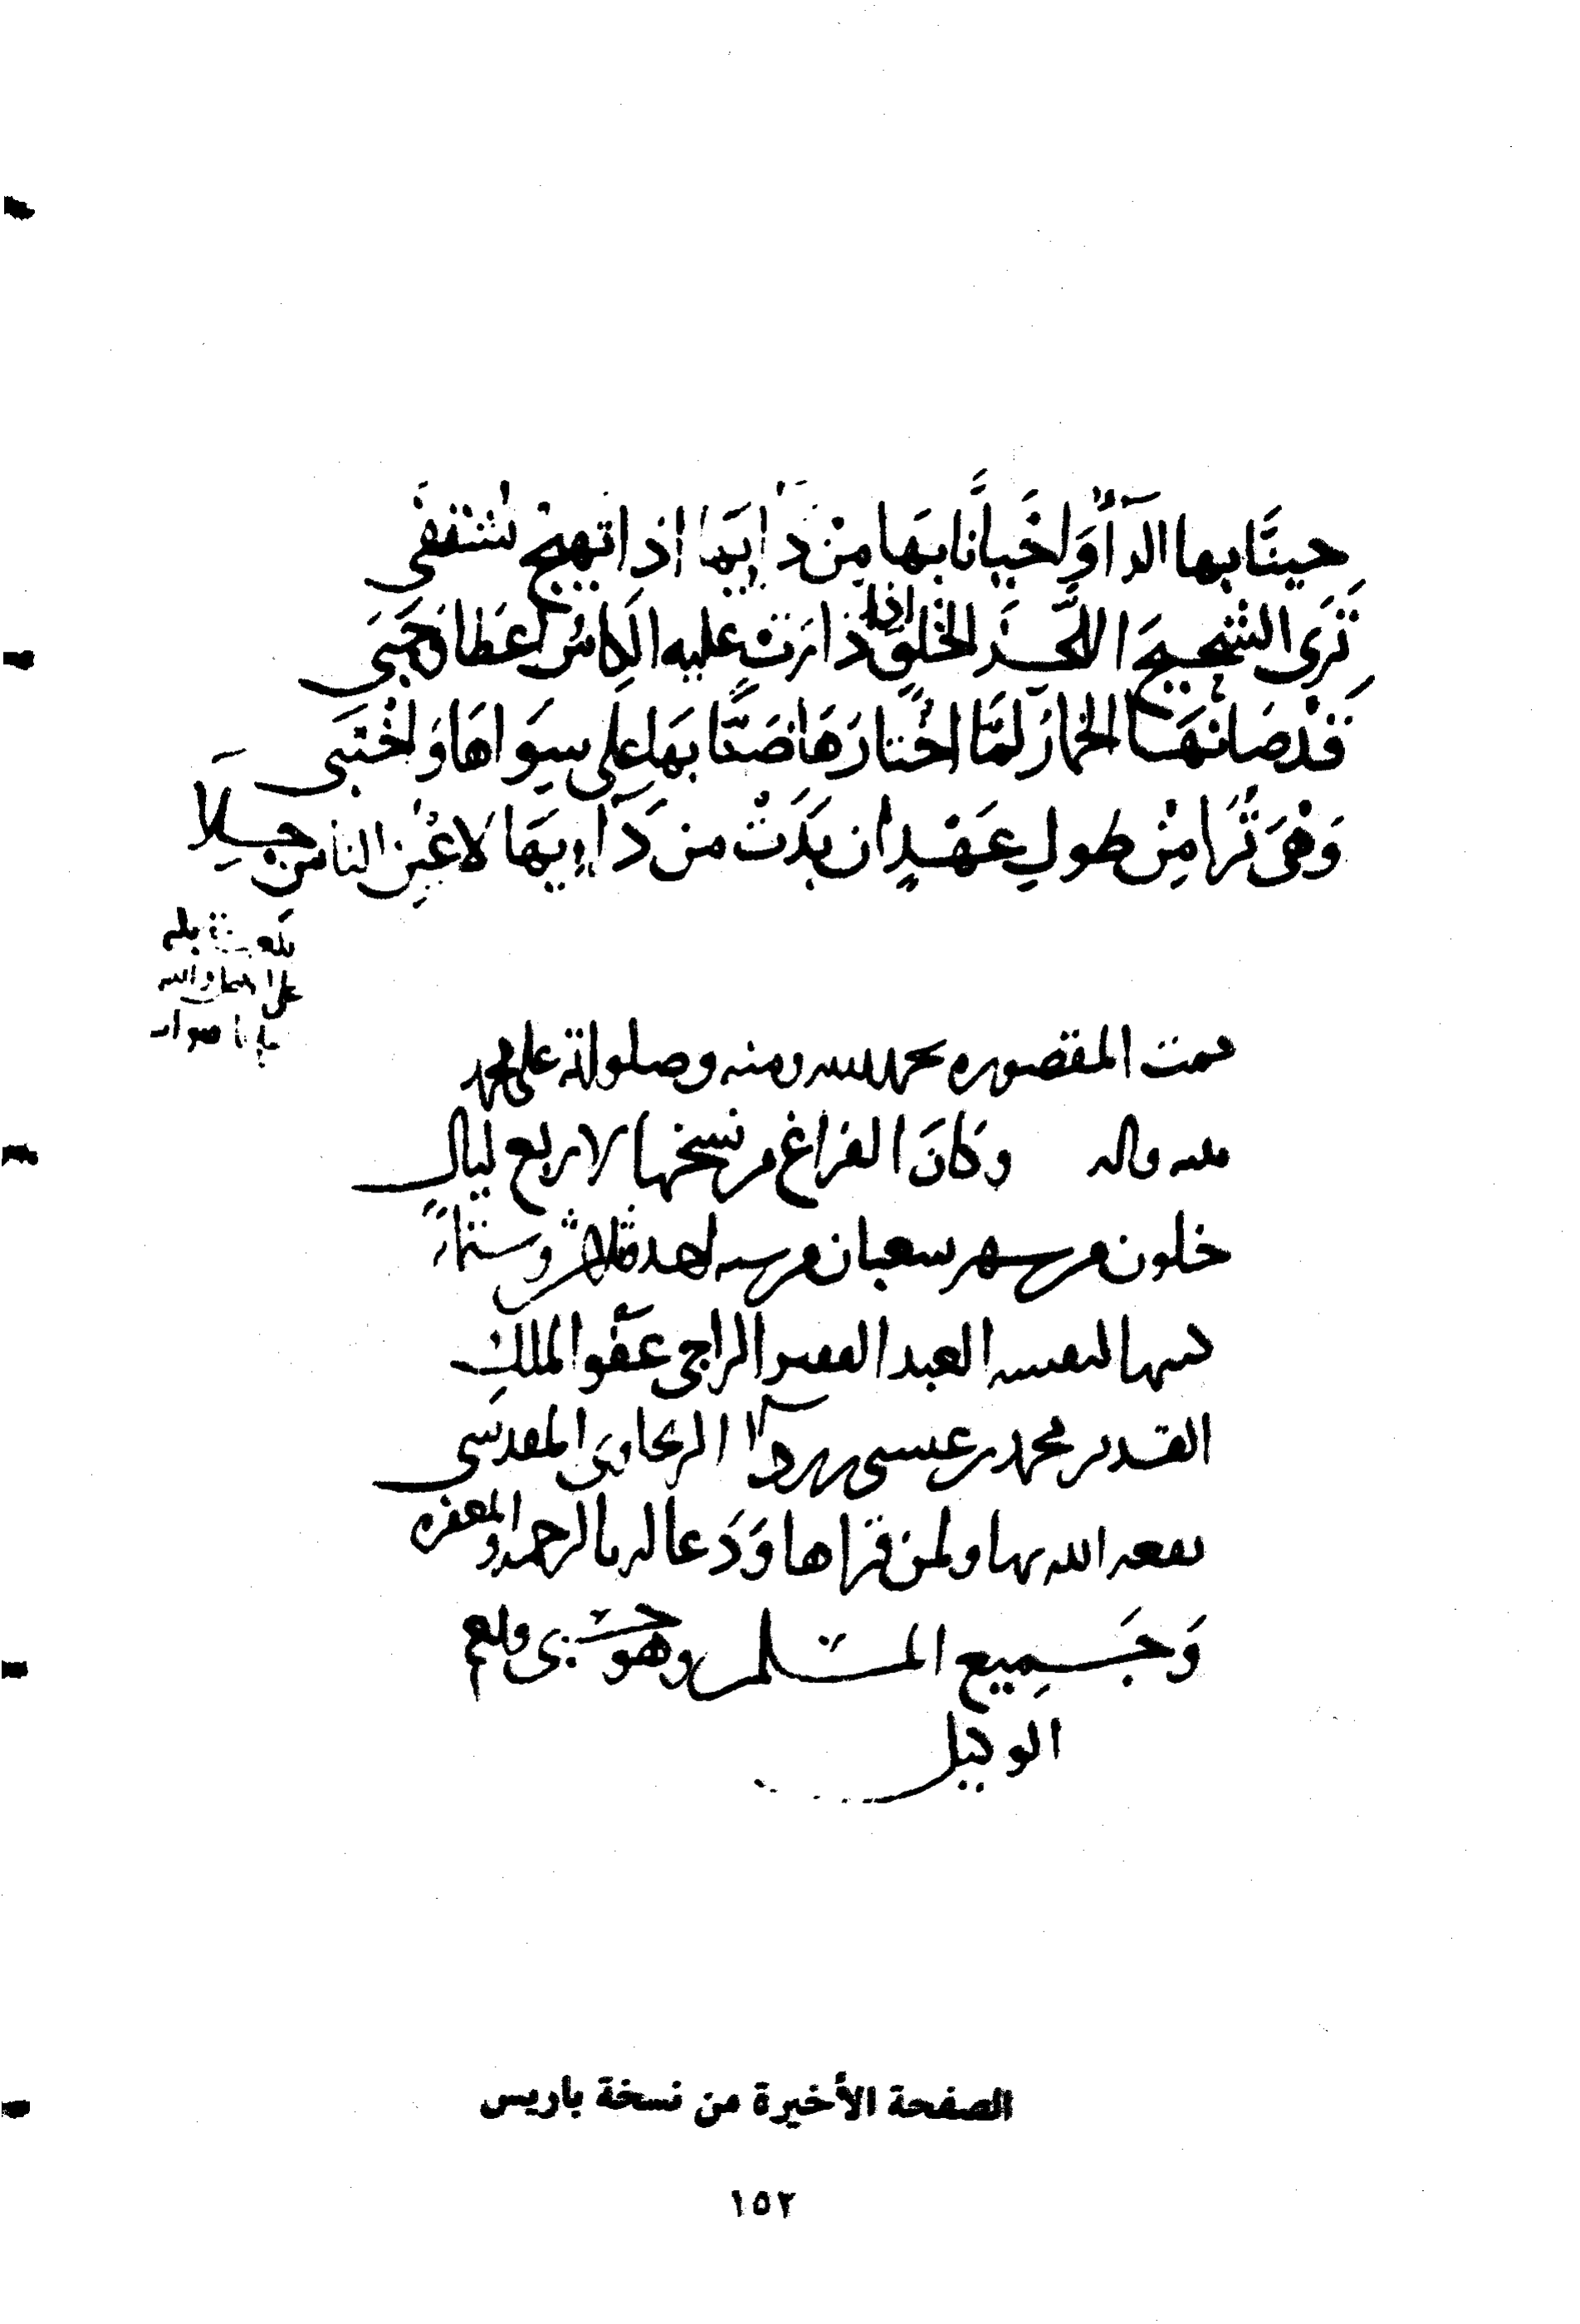 حِينًا بها الدَّآءُ وَاَحْيَانًا بِهَا مِنْ دَآيِهَا اذا تهيجُ نَشْتَفَى
تَرَى الشحيحَ اللَّحِزَ الخلقِ اذا دَارَتْ عليه الكَاسُ اَعْطَا وَحَبَى
قَدْ صَانَهَا الخمارُ لمَّا اخْتَارَهَا ضَنًّا بِهَا عَلَى سِوَاهَا وَاخْتَبَى
وَهْىَ تُرَا مِنْ طولِ عَهْدٍ ان بَدَتْ من دَآيِهَا لاعْيُنِ الناسِ جِلَا
تمت المقصوره بحمد الله ومنه وصلواته على محمد
نبيه واله وَكَانَ الفَرَاغ من نسخها لاربع ليالٍ
خلون من شهر شعبان من سنه احدى وثلاثين وستمائة
كتبها لنفسه العبد الفقير الراجى عَفْوَ الملك
القدير محمد بن عيسى بن الريحاوى المقدسى
نفعه الله بها ولمن قراها وَدَعا له بالرحمة والمغفره
وَجَمِيع المسْلمين وهو حَسْبى ونعم
الوكيل
الصفحة الأخيرة من نسخة باريس
١٥٢